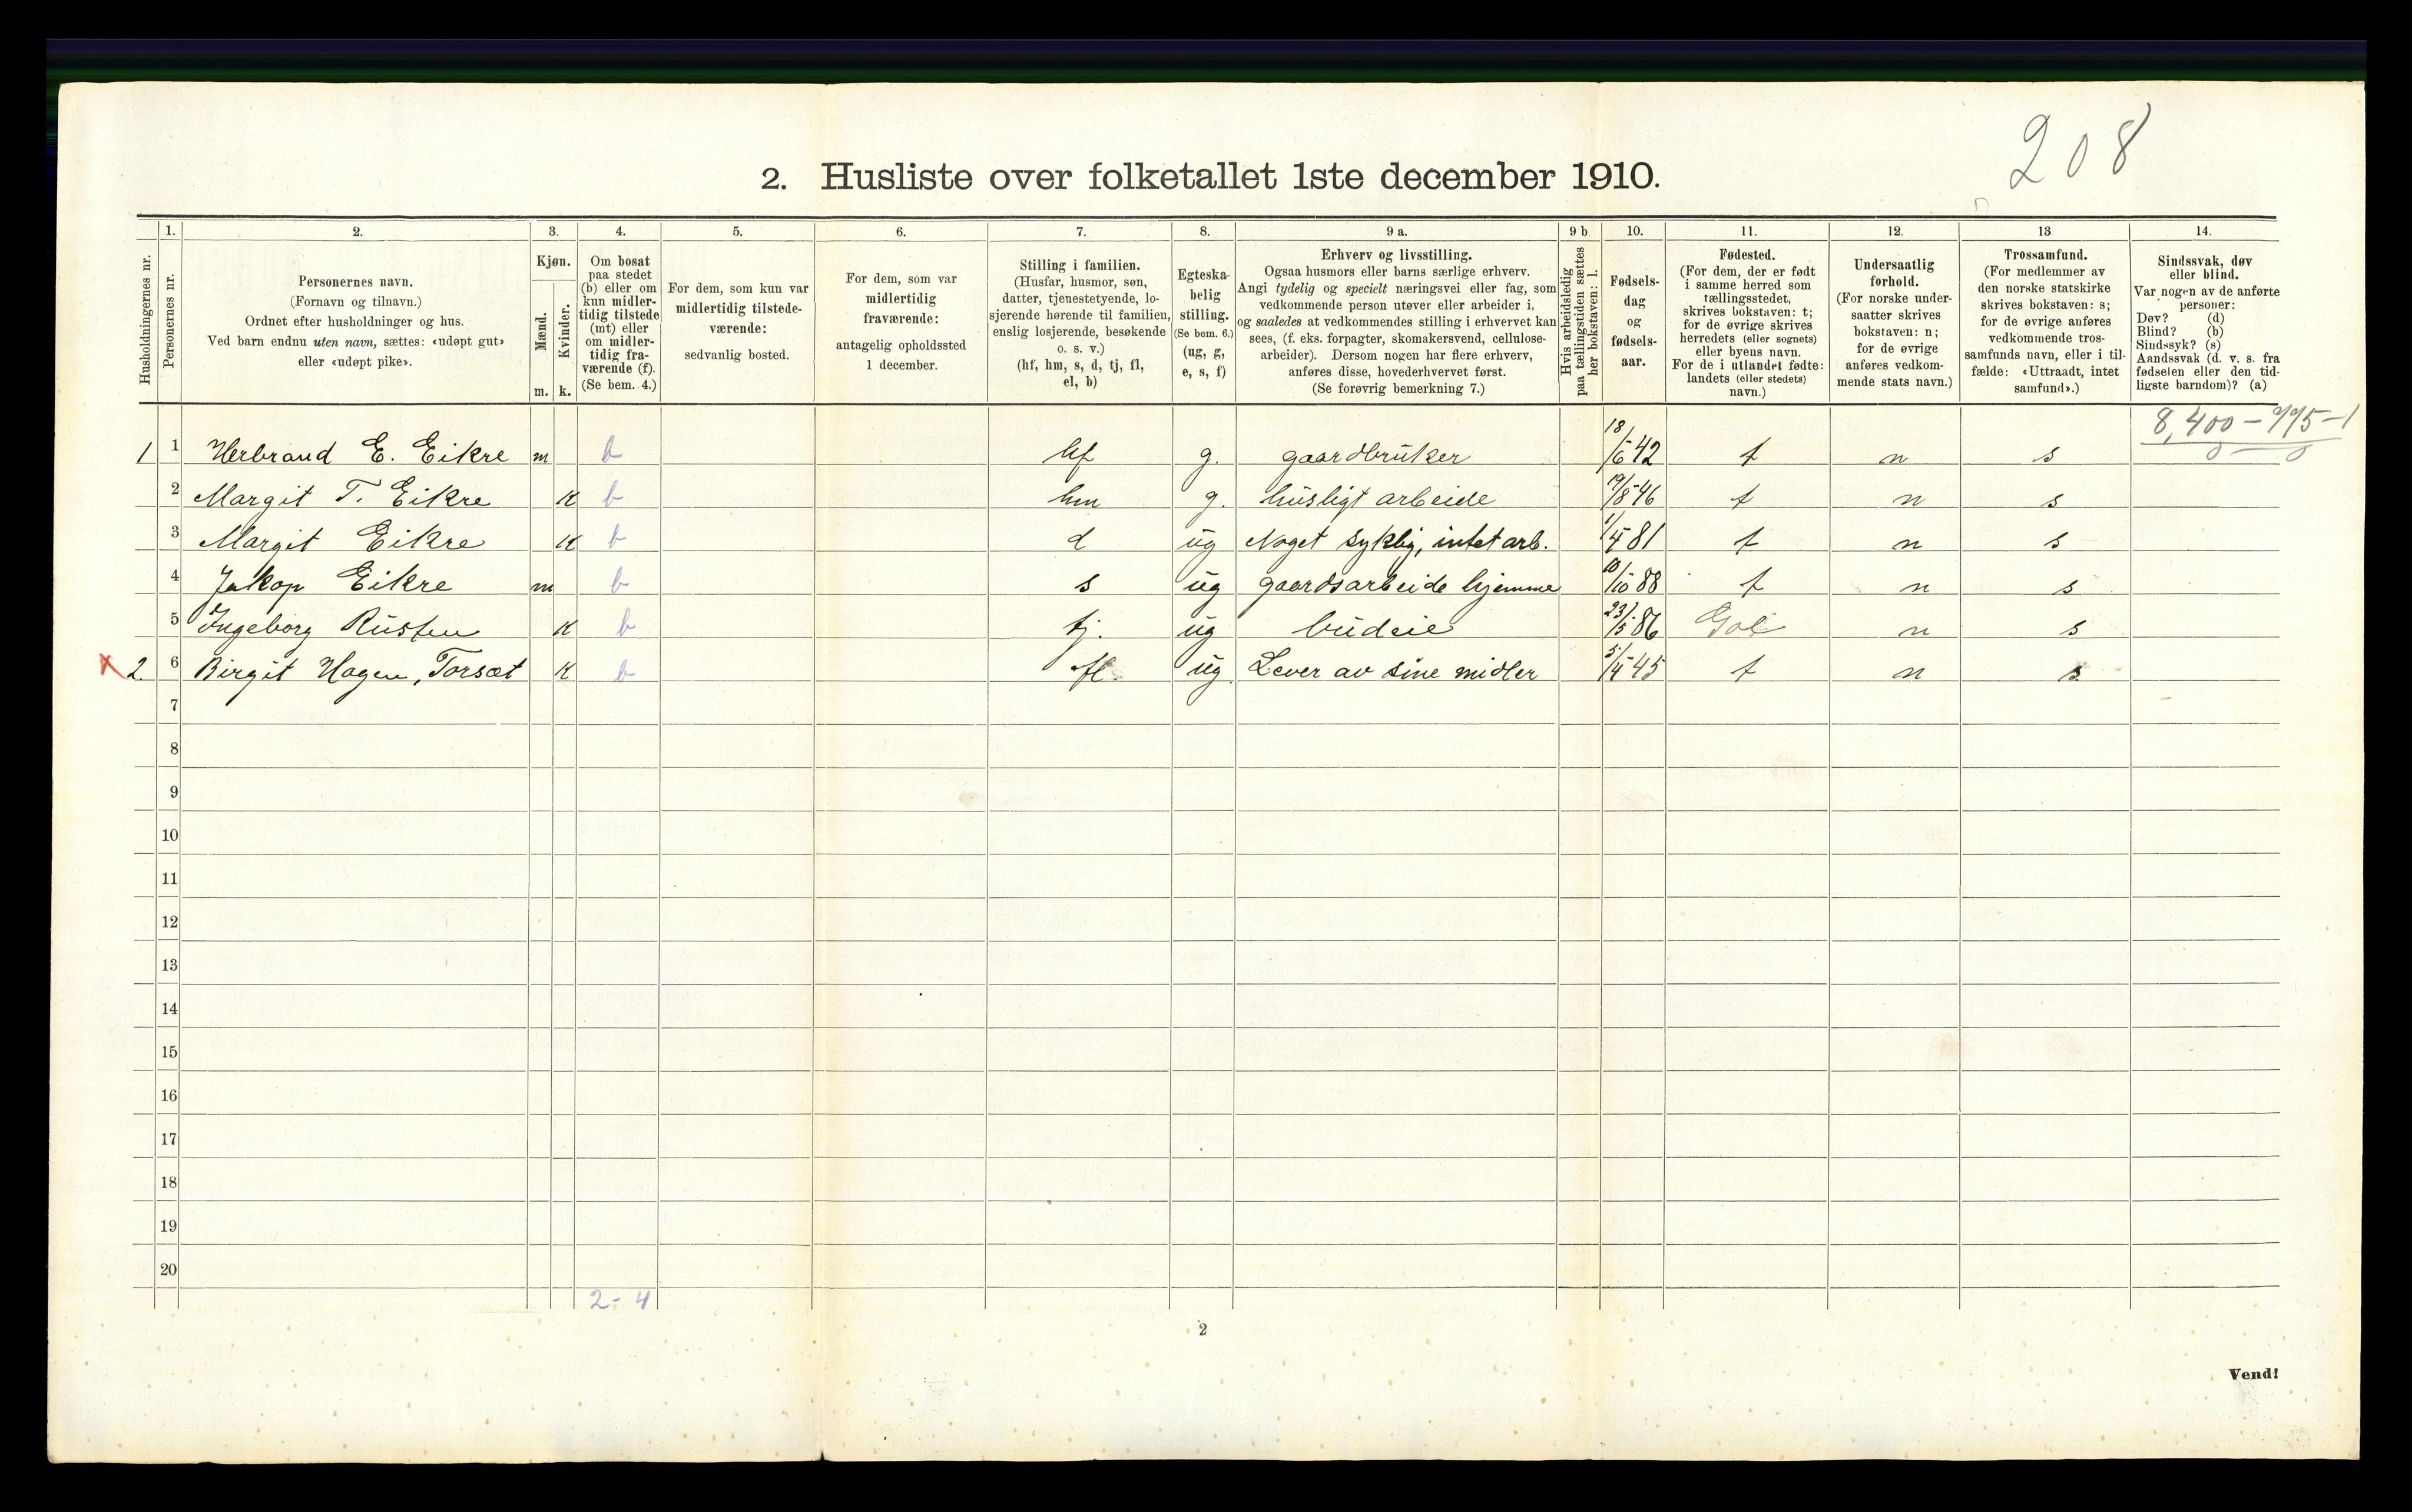 208
2. Husliste over folketallet 1ste december 1910.
Husholdningernes nr.
1. Personernes nr.
2. Personernes navn.
(Fornavn og tilnavn.)
Ordnet efter husholdninger og hus.
Ved barn endnu uten navn, sættes: «udøpt gut»
eller «udøpt pike».
3. Kjøn.
Mænd. m.
Kvinder. k.
4. Om bosat
paa stedet
(b) eller om
kun midler-
tidig tilstede
(mt) eller
om midler-
tidig fra-
værende (f).
(Se bem. 4.)
5. For dem, som kun var
midlertidig tilstede-
værende:
sedvanlig bosted.
6. For dem, som var
midlertidig
fraværende:
antagelig opholdssted
1 december.
7. Stilling i familien.
(Husfar, husmor, søn,
datter, tjenestetyende, lo-
sjerende hørende til familien,
enslig losjerende, besøkende
o. s. v.)
(hf, hm, s, d, tj, fl,
el, b)
8. Egteska-
belig
stilling.
(Se bem. 6.)
(ug, g,
e, s, f)
9 a. Erhverv og livsstilling.
Ogsaa husmors eller barns særlige erhverv.
Angi tydelig og specielt næringsvei eller fag, som
vedkommende person utøver eller arbeider i,
og saaledes at vedkommendes stilling i erhvervet kan
sees, (f. eks. forpagter, skomakersvend, cellulose-
arbeider). Dersom nogen har flere erhverv,
anføres disse, hovederhvervet først.
(Se forøvrig bemerkning 7.)
9 b Hvis arbeidsledig
paa tællingstiden sættes
her bokstaven: l.
10. Fødsels-
dag
og
fødsels-
aar.
11. Fødested.
(For dem, der er født
i samme herred som
tællingsstedet,
skrives bokstaven: t;
for de øvrige skrives
herredets (eller sognets)
eller byens navn.
For de i utlandet fødte:
landets (eller stedets)
navn.)
12. Undersaatlig
forhold.
(For norske under-
saatter skrives
bokstaven: n;
for de øvrige
anføres vedkom-
mende stats navn.)
13 Trossamfund.
(For medlemmer av
den norske statskirke
skrives bokstaven: s;
for de øvrige anføres
vedkommende tros-
samfunds navn, eller i til-
fælde: «Uttraadt, intet
samfund».)
14. Sindssvak, døv
eller blind.
Var nogen av de anførte
personer:
Døv? (d)
Blind? (b)
Sindssyk? (s)
Aandssvak (d. v. s. fra
fødselen eller den tid-
ligste barndom)? (a)
1 1 Herbrand E. Eikre m b hf g. gaardbruker 18/6-42 t n s
2 Margit T. Eikre K b hm g. husligt arbeide 19/8-46 t n s
3 Margit Eikre K b d ug Noget syklig, intet arb. 1/4 81 t n s
4 Jakop Eikre m b s ug gaardsarbeide hjemme 10/10 88 t n s
5 Ingeborg Rusten K b tj. ug budeie 23/5 86 Gol n s
X 2. 6 Birgit Hagen, Torsæt K b fl. ug. Lever av sine midler 5/4-45 t n s
7
8
9
10
11
12
13
14
15
16
17
18
19
20
2-4
2
Vend!